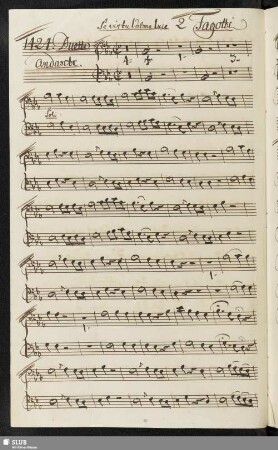 Se virtu l'alma luce 2 Fagotti
1424. Duetto
Andante.
Solo
SLUB